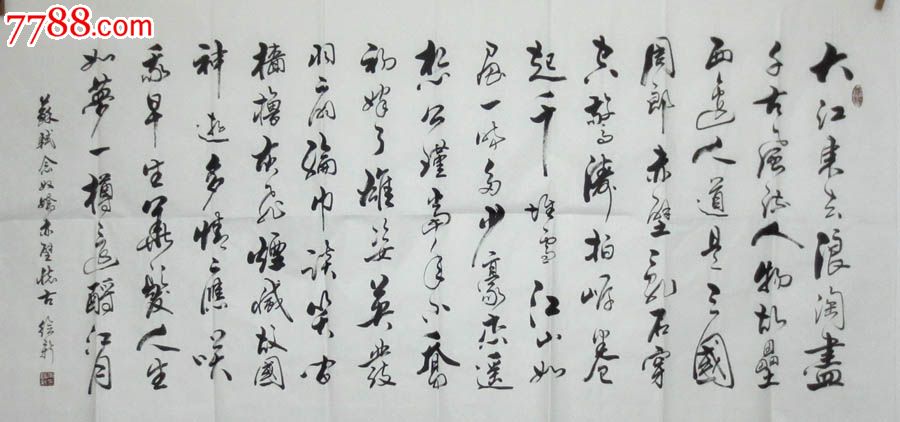 7788.com
大江東去浪淘盡
千古風流人物故壘
西邊人道是三國
周郎赤壁亂石穿
空驚濤拍岸卷
起千堆雪江山如
畫一時多少豪傑遙
想公瑾當年小喬
初嫁了雄姿英發
羽扇綸巾談笑間
檣櫓灰飛煙滅故國
神遊多情應笑
我早生華髮人生
如夢一樽還酹江月
蘇軾念奴嬌赤壁懷古